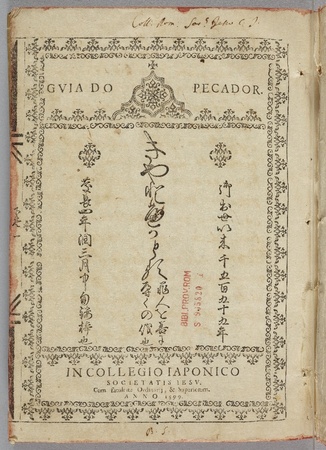 Coll. Rom.
GVIA DO PECADOR.
御出世以来千五百九十九年
きやとへかとる
罪人を善に
導くの儀也
慶長四年閏三月中旬鏤梓也
BIBL.PROV.ROM
IN COLLEGIO IAPONICO
SOCIETATIS IESV.
Cum facultate Ordinarij, & Superiorum.
ANNO 1599.